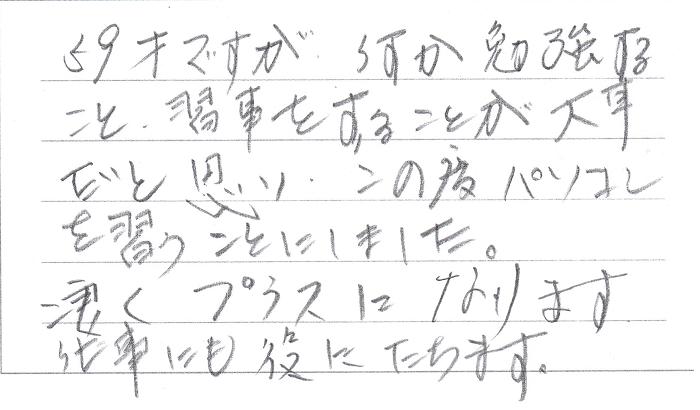 59才ですが 何か勉強する
こと、習事をすることが大事
だと思い、この度パソコン
を習うことにしました。
凄くプラスになります
仕事にも役にたちます。